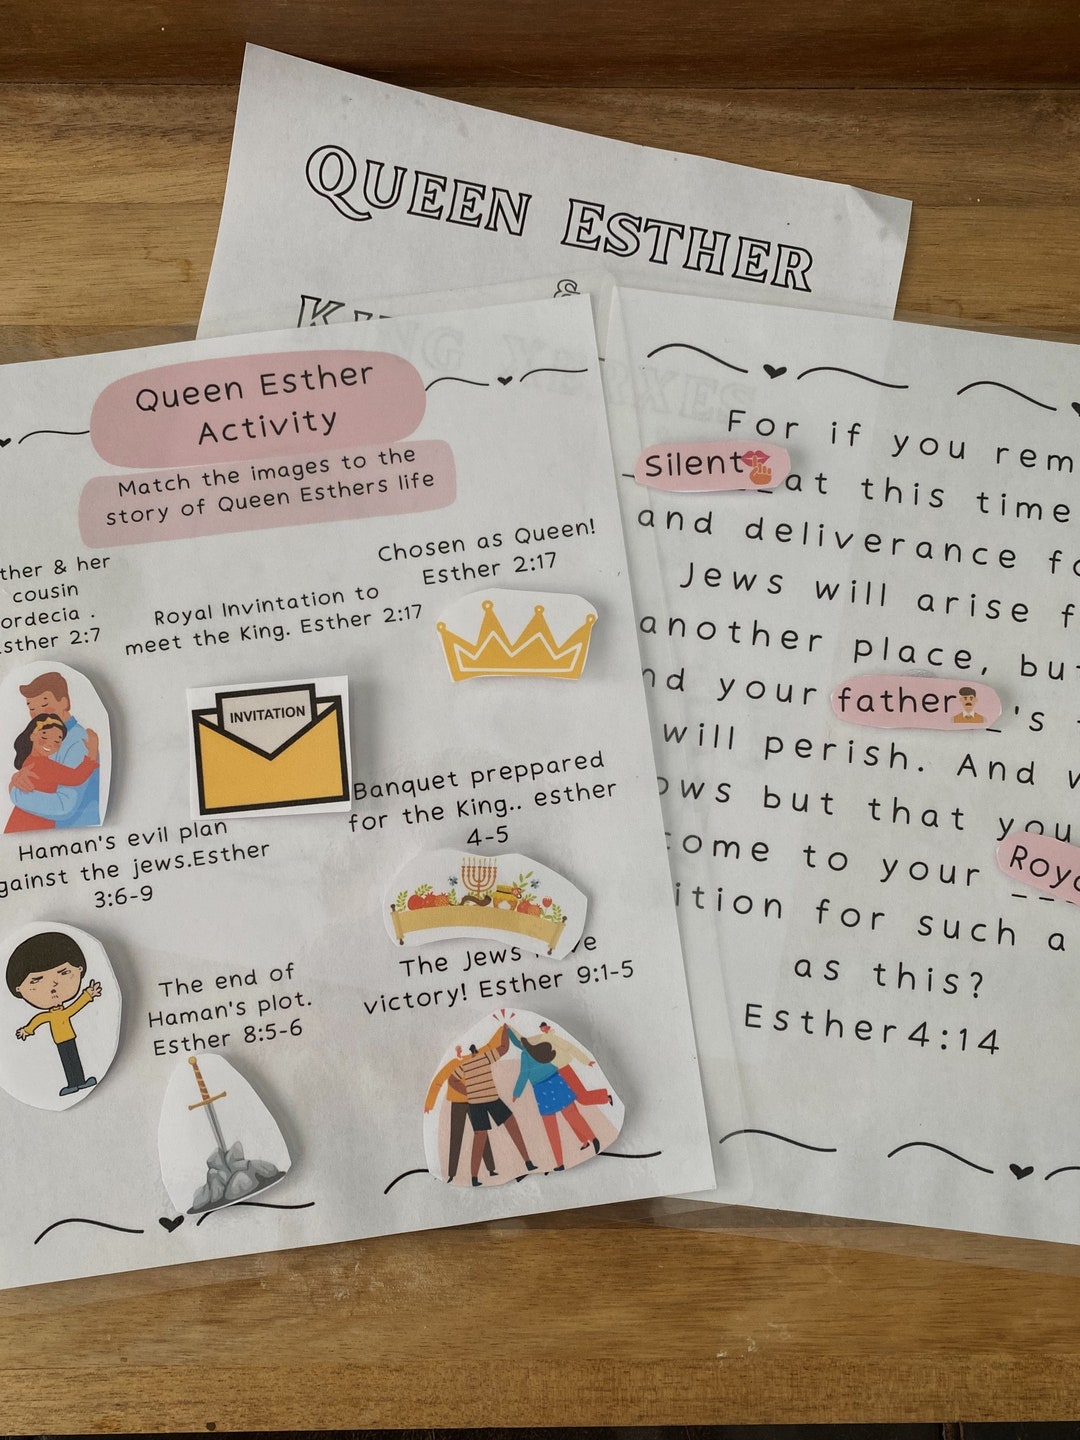 QUEEN ESTHER
&
KING XERXES
Queen Esther
Activity
Match the images to the
story of Queen Esthers life
ther & her
cousin
ordecia .
sther 2:7
Royal Invintation to
meet the King. Esther 2:17
Chosen as Queen!
Esther 2:17
INVITATION
Haman's evil plan
gainst the jews.Esther
3:6-9
Banquet preppared
for the King.. esther
4-5
The end of
Haman's plot.
Esther 8:5-6
The Jews
victory! Esther 9:1-5
For if you rem
Silent at this time
and deliverance fo
Jews will arise f
another place, but
nd your father's
will perish. And w
ows but that you
ome to your Roya
ition for such a
as this?
Esther4:14